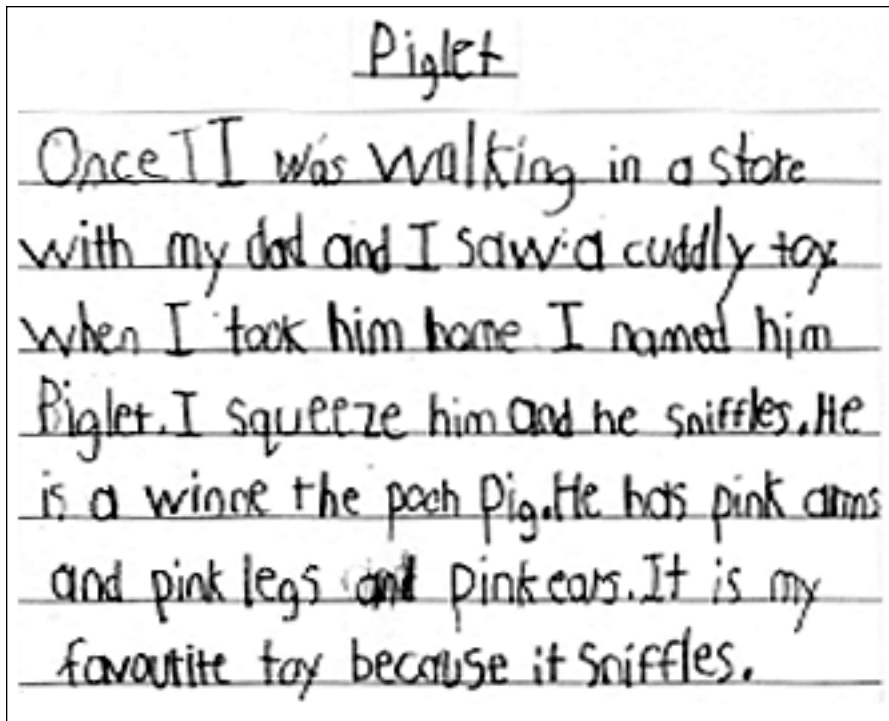 Piglet
Once I I was walking in a store
with my dad and I saw a cuddly toy.
when I took him home I named him
Piglet. I squeeze him and he sniffles. He
is a winne the pooh pig. He has pink arms
and pink legs and pink ears. It is my
favoutite toy because it sniffles.